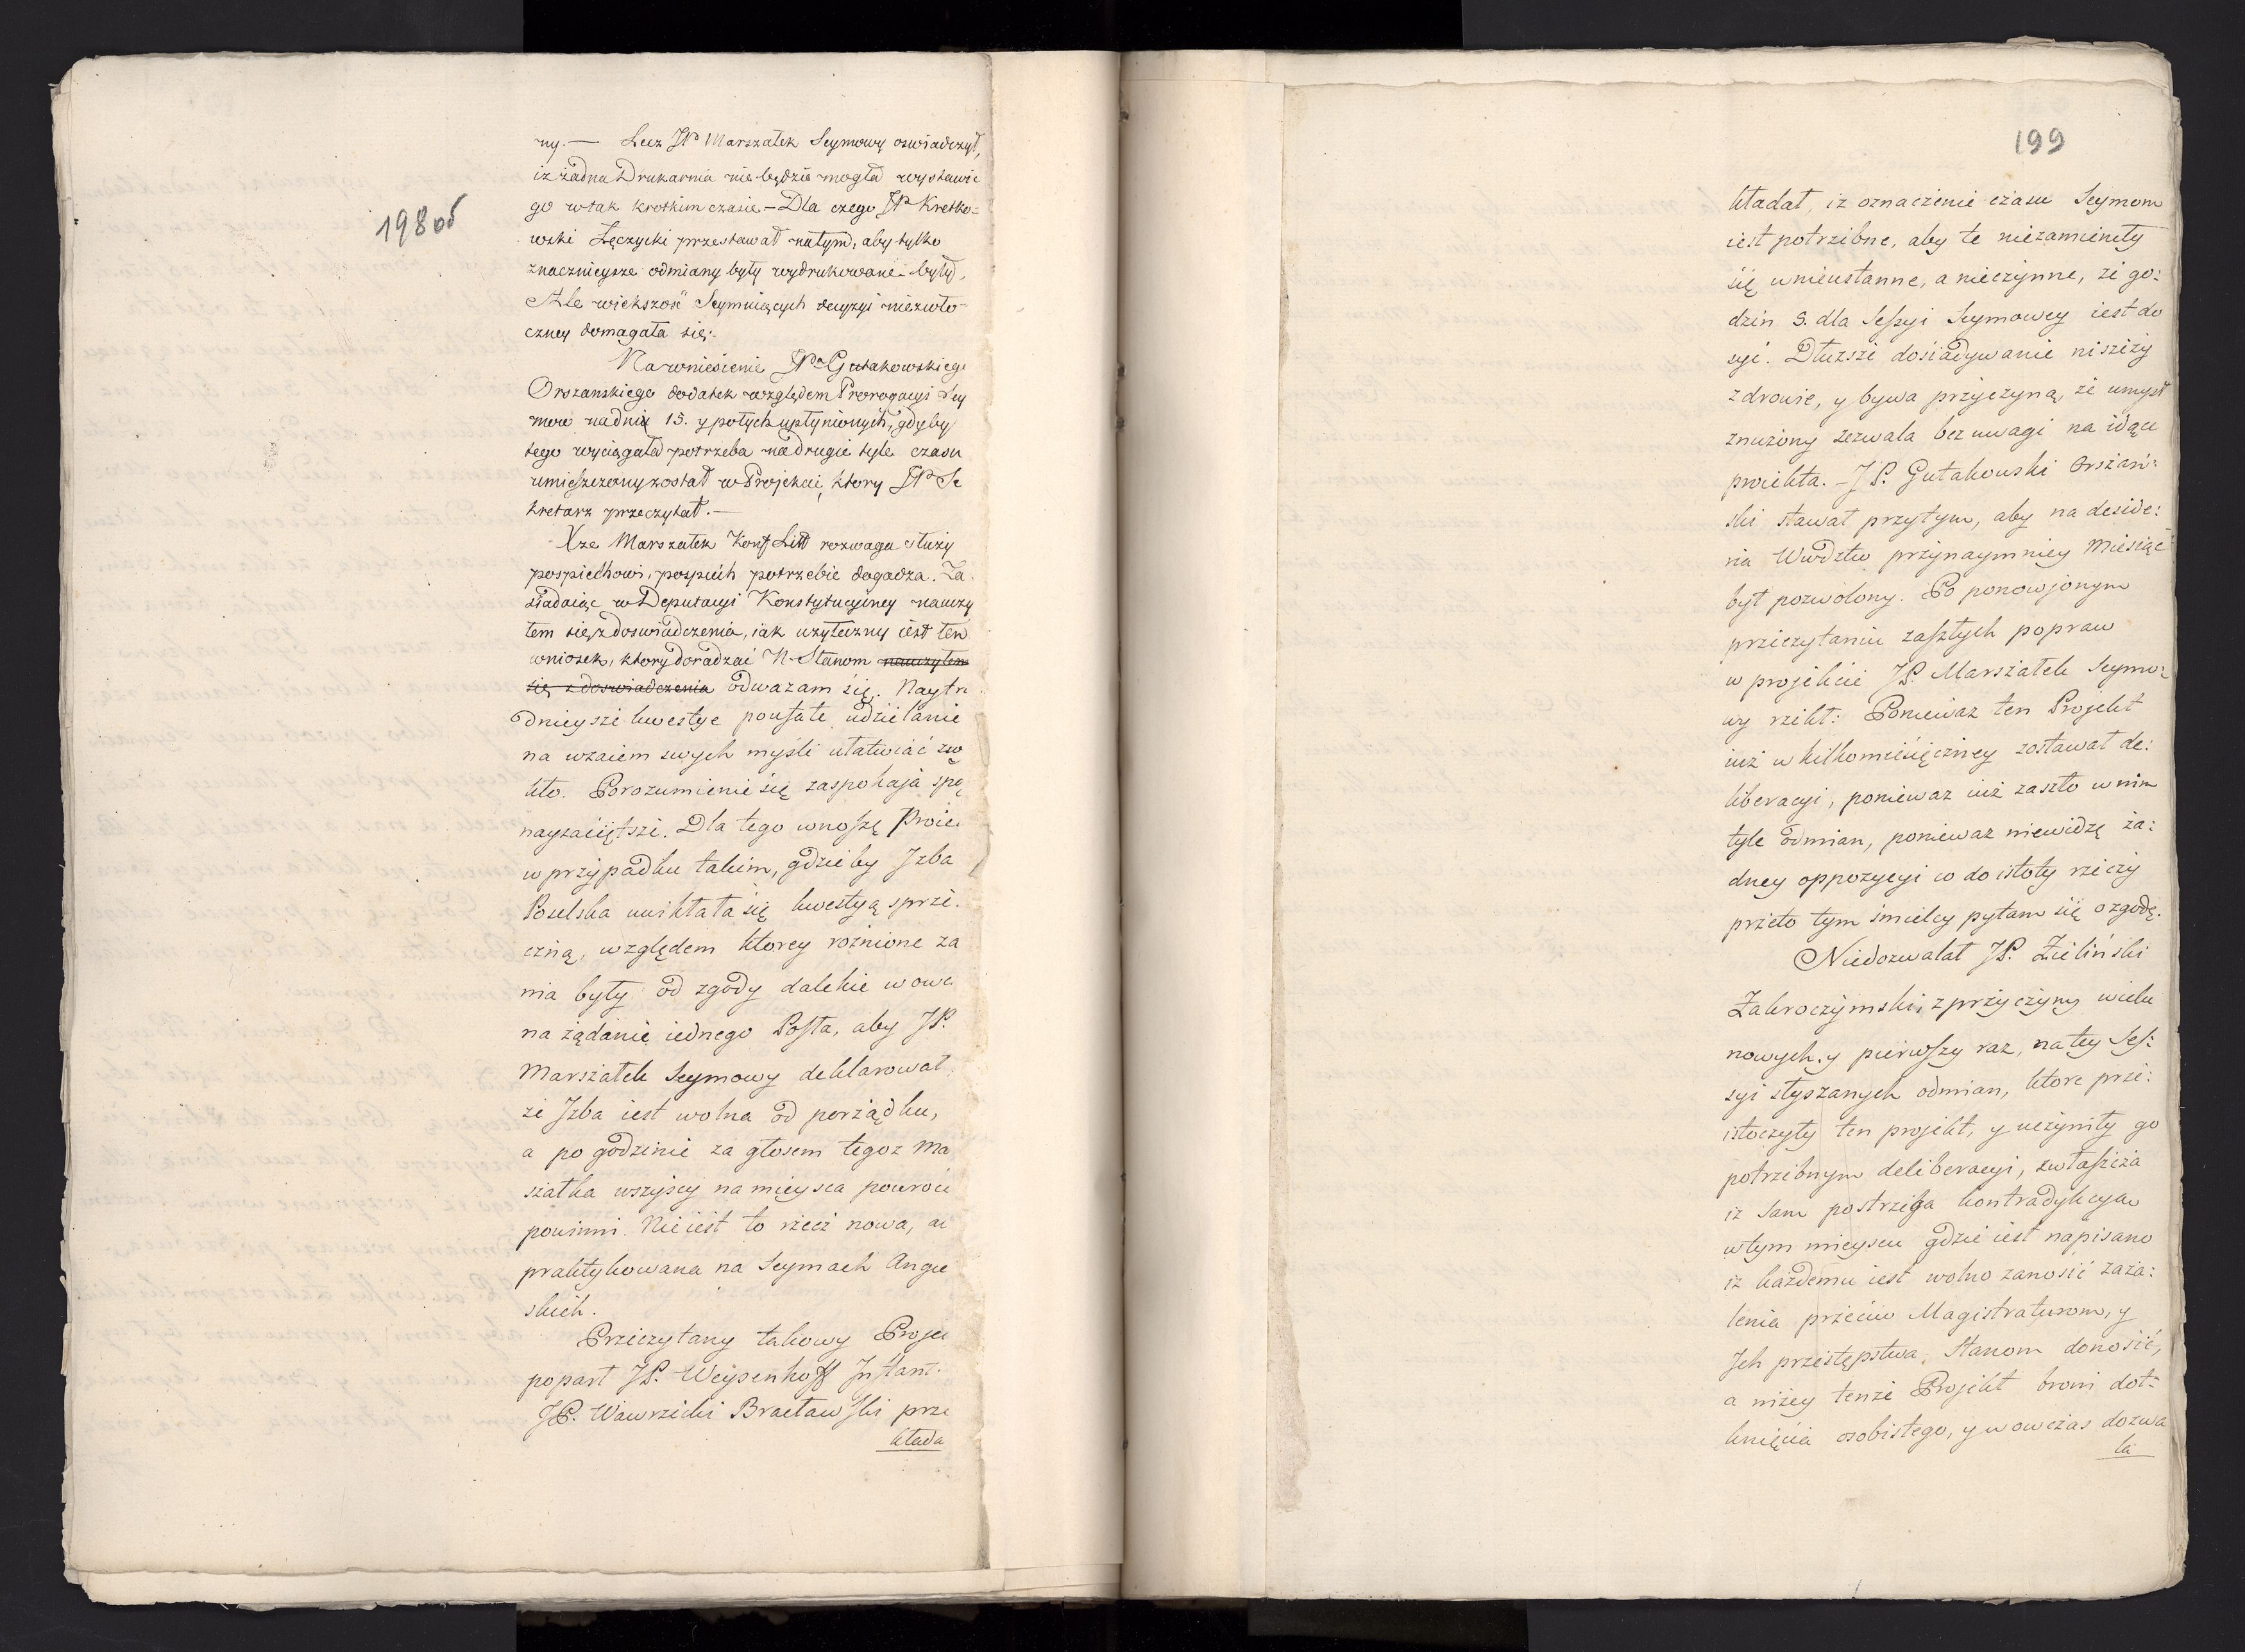 198 об
ny. — Lecz JP Marszałek Seymowy oswiadczył,
iz żadna Drukarnia nie będzie mogła wystawic
go w tak krotkim czasie. – Dla czego JP Kretko=
wski Łęczycki przestawał natym, aby tylko
znacznieysze odmiany były wydrukowane były.
Ale większość Seymuiących decyzyi niezwło
czney domagała się:
Na wniesienie JPa Gutakowskiego
Orszanskiego dodatek względem Prorogacyi Sey
mow na dni 15. y po tych upłynionych, gdyby
tego wyciągała potrzeba na drugie tyle czasu
umieszczony został w Projekcie, ktory JP Se
kretarz przeczytał. —
Xze Marszałek Konf Litt rozwaga służy
pospiechowi, pospiech potrzebie dogadza. Za
siadaiąc w Deputacyi Konstytucyiney nauczy
łem się z doswiadczenia, iak uzyteczny iest ten
wniosek, ktory doradzać N. Stanom nauczyłem
się z doswiadczenia odwazam się. Naytru
dnieysze kwestye poufałe udzielanie
na wzaiem swych myśli ułatwiać zwy
kło. Porozumienie się zaspokaja spo
nayzaciętsze. Dla tego wnoszę Proie
w przypadku takim, gdzieby Izba
Poselska uwikłała się kwestyą sprze.
czną, względem ktorey roznione za
nia były od zgody dalekie wowc
na ządanie iednego Posła, aby JP.
Marszałek Seymowy deklarował,
ze Izba iest wolna od porządku,
a po godzinie za głosem tegoz Ma
szałka wszyscy na mieysca powroci
powinni. Nie iest to rzecz nowa, al
praktykowana na Seymach Angie
skich.
Przeczytany takowy Projek
poparł JP. Weysenhoff Inflant.
JP. Wawrzecki Bracławski prze
kłada
199
kładał, iz oznaczenie czasu Seymom
iest potrzebne, aby te niezamieniły
się w nieustanne, a nieczynne, ze go:
dzin 5. dla Sessyi Seymowey iest do
syć. Dłuzsze dosiadywanie niszczy
zdrowie, y bywa przyczyną, ze umysł
znuzony zezwala bez uwagi na idące
proiekta. – JP. Gutakowski Orszań:
ski stawał przy tym, aby na deside:
ria Wwdztw przynaymniey Miesiąc
był pozwolony. Po ponowjonym
przeczytaniu zaszłych popraw
w projekcie JP. Marszałek Seymo:
wy rzekł: Poniewaz ten Projekt
iuż w kilkomiesięczney zostawał de:
liberacyi, poniewaz iuż zaszło w nim
tyle odmian, poniewaz niewidzę ża:
dney oppozycyi co do istoty rzeczy
przeto tym śmieley pytam się o zgodę.
Niedozwalał JP. Zieliński
Zakroczymski, z przyczyny wielu
nowych, y pierwszy raz, na tey Ses:
syi słyszanych odmian, ktore prze:
istoczyły ten projekt, y uczyniły go
potrzebnym deliberacyi, zwłaszcza
iz sam postrzega kontradykcya
w tym mieyscu gdzie iest napisano
iz każdemu iest wolno zanosić zaza:
lenia przeciw Magistraturom, y
Ich przestępstwa Stanom donosić,
a nizey tenze Projekt broni dot:
knięcia osobistego, y wowczas dozwa
la